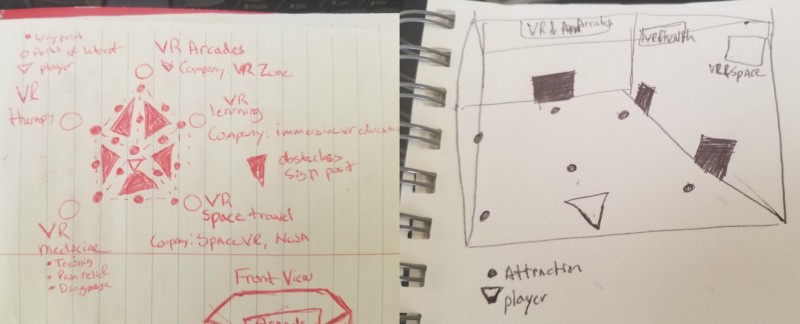 • Waypoint
○ Point of interest
▽ player
VR Arcades
Company: VR Zone
VR
therapy
VR
learning
Company: immersive vr education
obstacles
sign post
VR
space travel
Company: SpaceVR, Nasa
VR
medicine
• Training
• Pain relief
• Diagnose
Front View
Arcade
VR &
Arcades
VR Space
• Attraction
▽ player